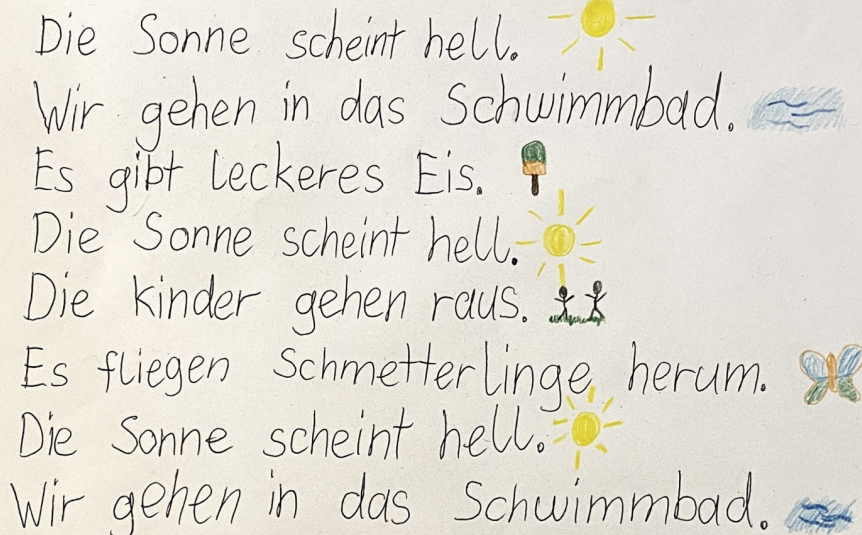 Die Sonne scheint hell.
Wir gehen in das Schwimmbad.
Es gibt leckeres Eis.
Die Sonne scheint hell.
Die kinder gehen raus.
Es fliegen Schmetterlinge herum.
Die Sonne scheint hell.
Wir gehen in das Schwimmbad.